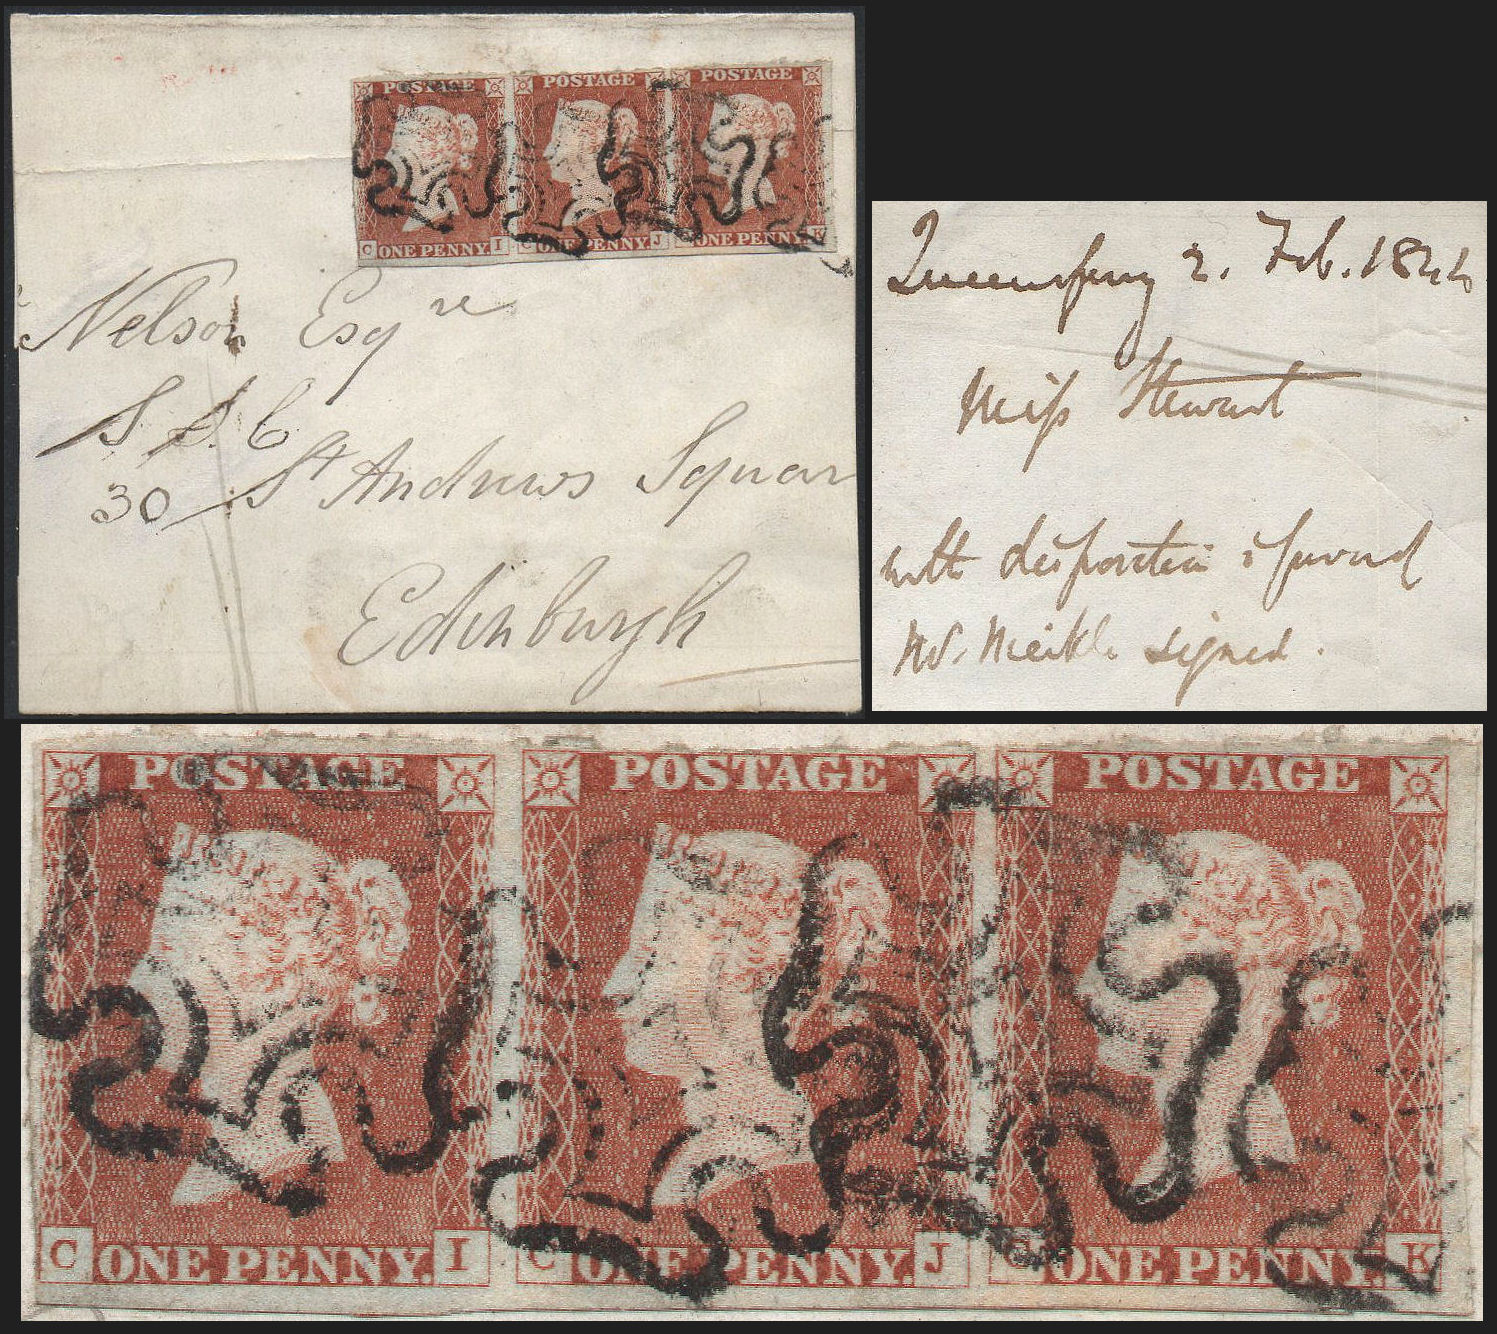 POSTAGE POSTAGE POSTAGE
C ONE PENNY. I C ONE PENNY. J ONE PENNY. K
Nelson Esqre
S. S. C
30 St Andrews Squar
Edinburgh
Queensferry 2. Feb. 1844
Miss Stewart
with disposition
Meikle signed.
POSTAGE POSTAGE POSTAGE
C ONE PENNY. I C ONE PENNY. J C ONE PENNY. K